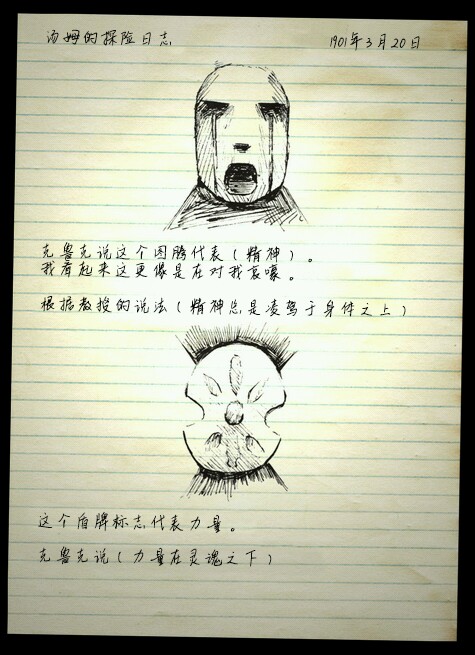 汤姆的探险日志 1901年3月20日
克鲁克说这个图腾代表(精神)。
我看起来这更像是在对我哀嚎。
根据教授的说法(精神总是凌驾于身体之上)
这个盾牌标志代表力量。
克鲁克说(力量在灵魂之下)